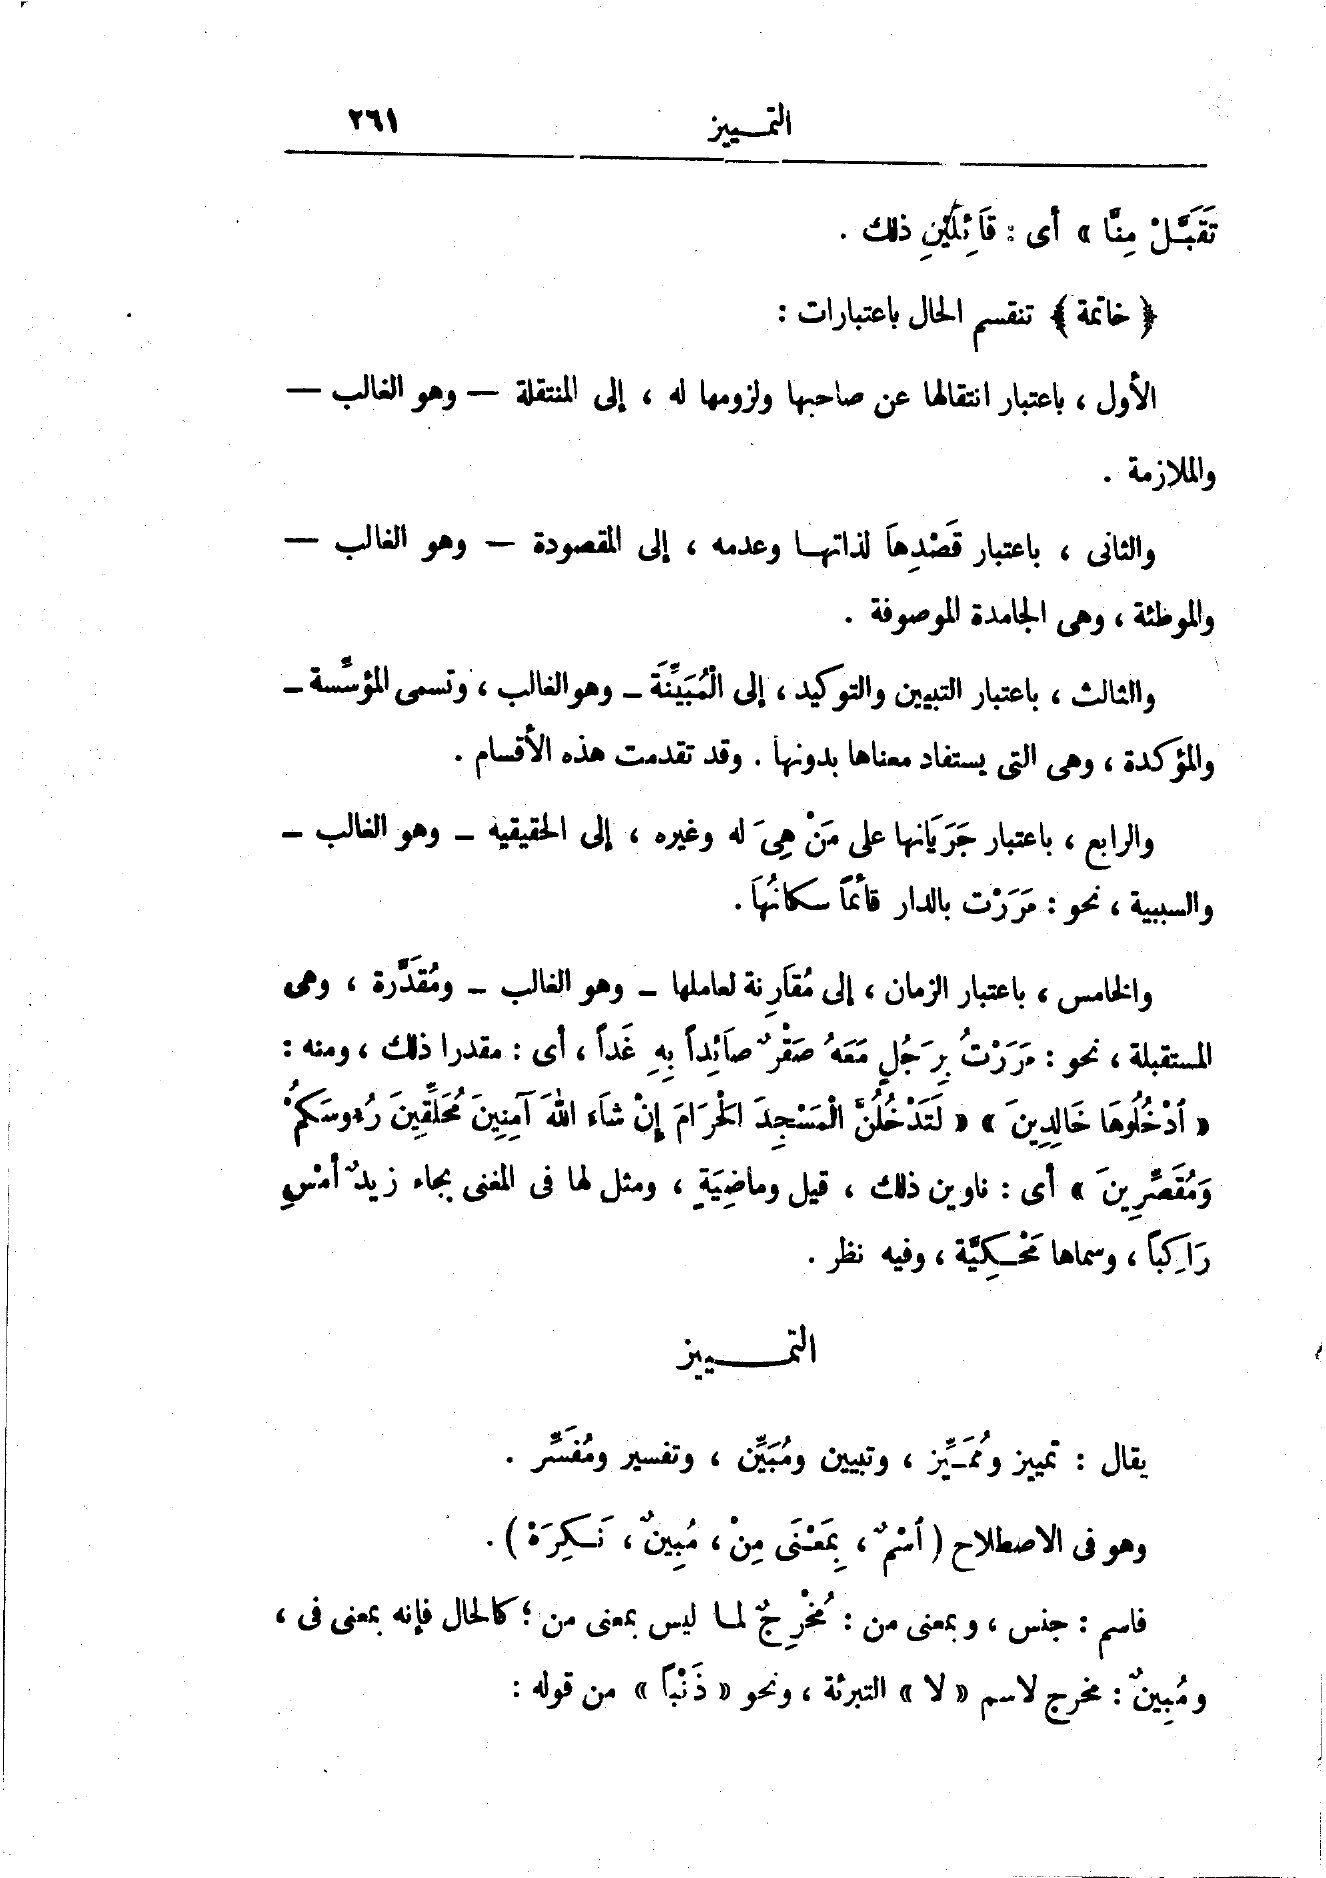 التمـييز ٢٦١
تَقَبَّلْ مِنَّا » أى : قَائِلَيْنِ ذلك .
﴿ خاتمة ﴾ تنقسم الحال باعتبارات :
الأول ، باعتبار انتقالها عن صاحبها ولزومها له ، إلى المنتقلة — وهو الغالب —
والملازمة .
والثانى ، باعتبار قَصْدِهاَ لذاتها وعدمه ، إلى المقصودة — وهو الغالب —
والموطئة ، وهى الجامدة الموصوفة .
والثالث ، باعتبار التبيين والتوكيد ، إلى الْمُبَيِّنَة ـ وهو الغالب ، وتسمى المؤسِّسة ـ
والمؤكدة ، وهى التى يستفاد معناها بدونها . وقد تقدمت هذه الأقسام .
والرابع ، باعتبار جَرَيَانها على مَنْ هِىَ له وغيره ، إلى الحقيقية ـ وهو الغالب ـ
والسببية ، نحو : مَرَرْت بالدار قائماً سكانُهاَ .
والخامس ، باعتبار الزمان ، إلى مُقاَرِنة لعاملها ـ وهو الغالب ـ ومُقدَّرة ، وهى
المستقبلة ، نحو : مَرَرْتُ بِرَجُلٍ مَعَهُ صَقْرٌ صاَئِداً بِهِ غَداً ، أى : مقدرا ذلك ، ومنه :
« اُدْخُلُوهَا خَالِدِينَ » « لَتَدْخُلُنَّ الْمَسْجِدَ الْحَرَامَ إِنْ شَاءَ اللهُ آمِنِينَ مُحَلِّقِينَ رُءوسَكُمْ
وَمُقَصِّرِينَ » أى : ناوين ذلك ، قيل وماضِيَةٍ ، ومثل لها فى المغنى بجاء زيدٌ أمْسِ
رَاكِباً ، وسماها مَحْـكِيَّة ، وفيه نظر .
التمـــييز
يقال : تمييز ومُمَـيِّز ، وتبيين ومُبَيِّن ، وتفسير ومُفَسِّر .
وهو فى الاصطلاح ( اُسْمٌ ، بِمَعْنَى مِنْ ، مُبِينٌ ، نَـكِرَةْ ) .
فاسم : جنس ، وبمعنى من : مُخْرِجٌ لما ليس بمعنى من ؛ كالحال فإنه بمعنى فى ،
ومُبِينٌ : مخرج لاسم « لا » التبرئة ، ونحو « ذَنْباً » من قوله :